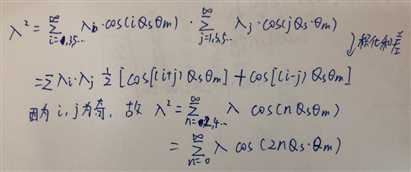 λ² = Σ_{i=1,3,5...}^{∞} λ_i·cos(iQsθm) · Σ_{j=1,3,5...}^{∞} λ_j·cos(jQs·θm)
积化和差
= Σ λi·λj ½ [cos[(i+j) Qsθm] + cos[(i-j) Qsθm]
因为 i, j 为奇, 故 λ² = Σ_{n=0,2,4...}^{∞} λ cos(nQsθm)
= Σ_{n=0}^{∞} λ cos(2nQs·θm)